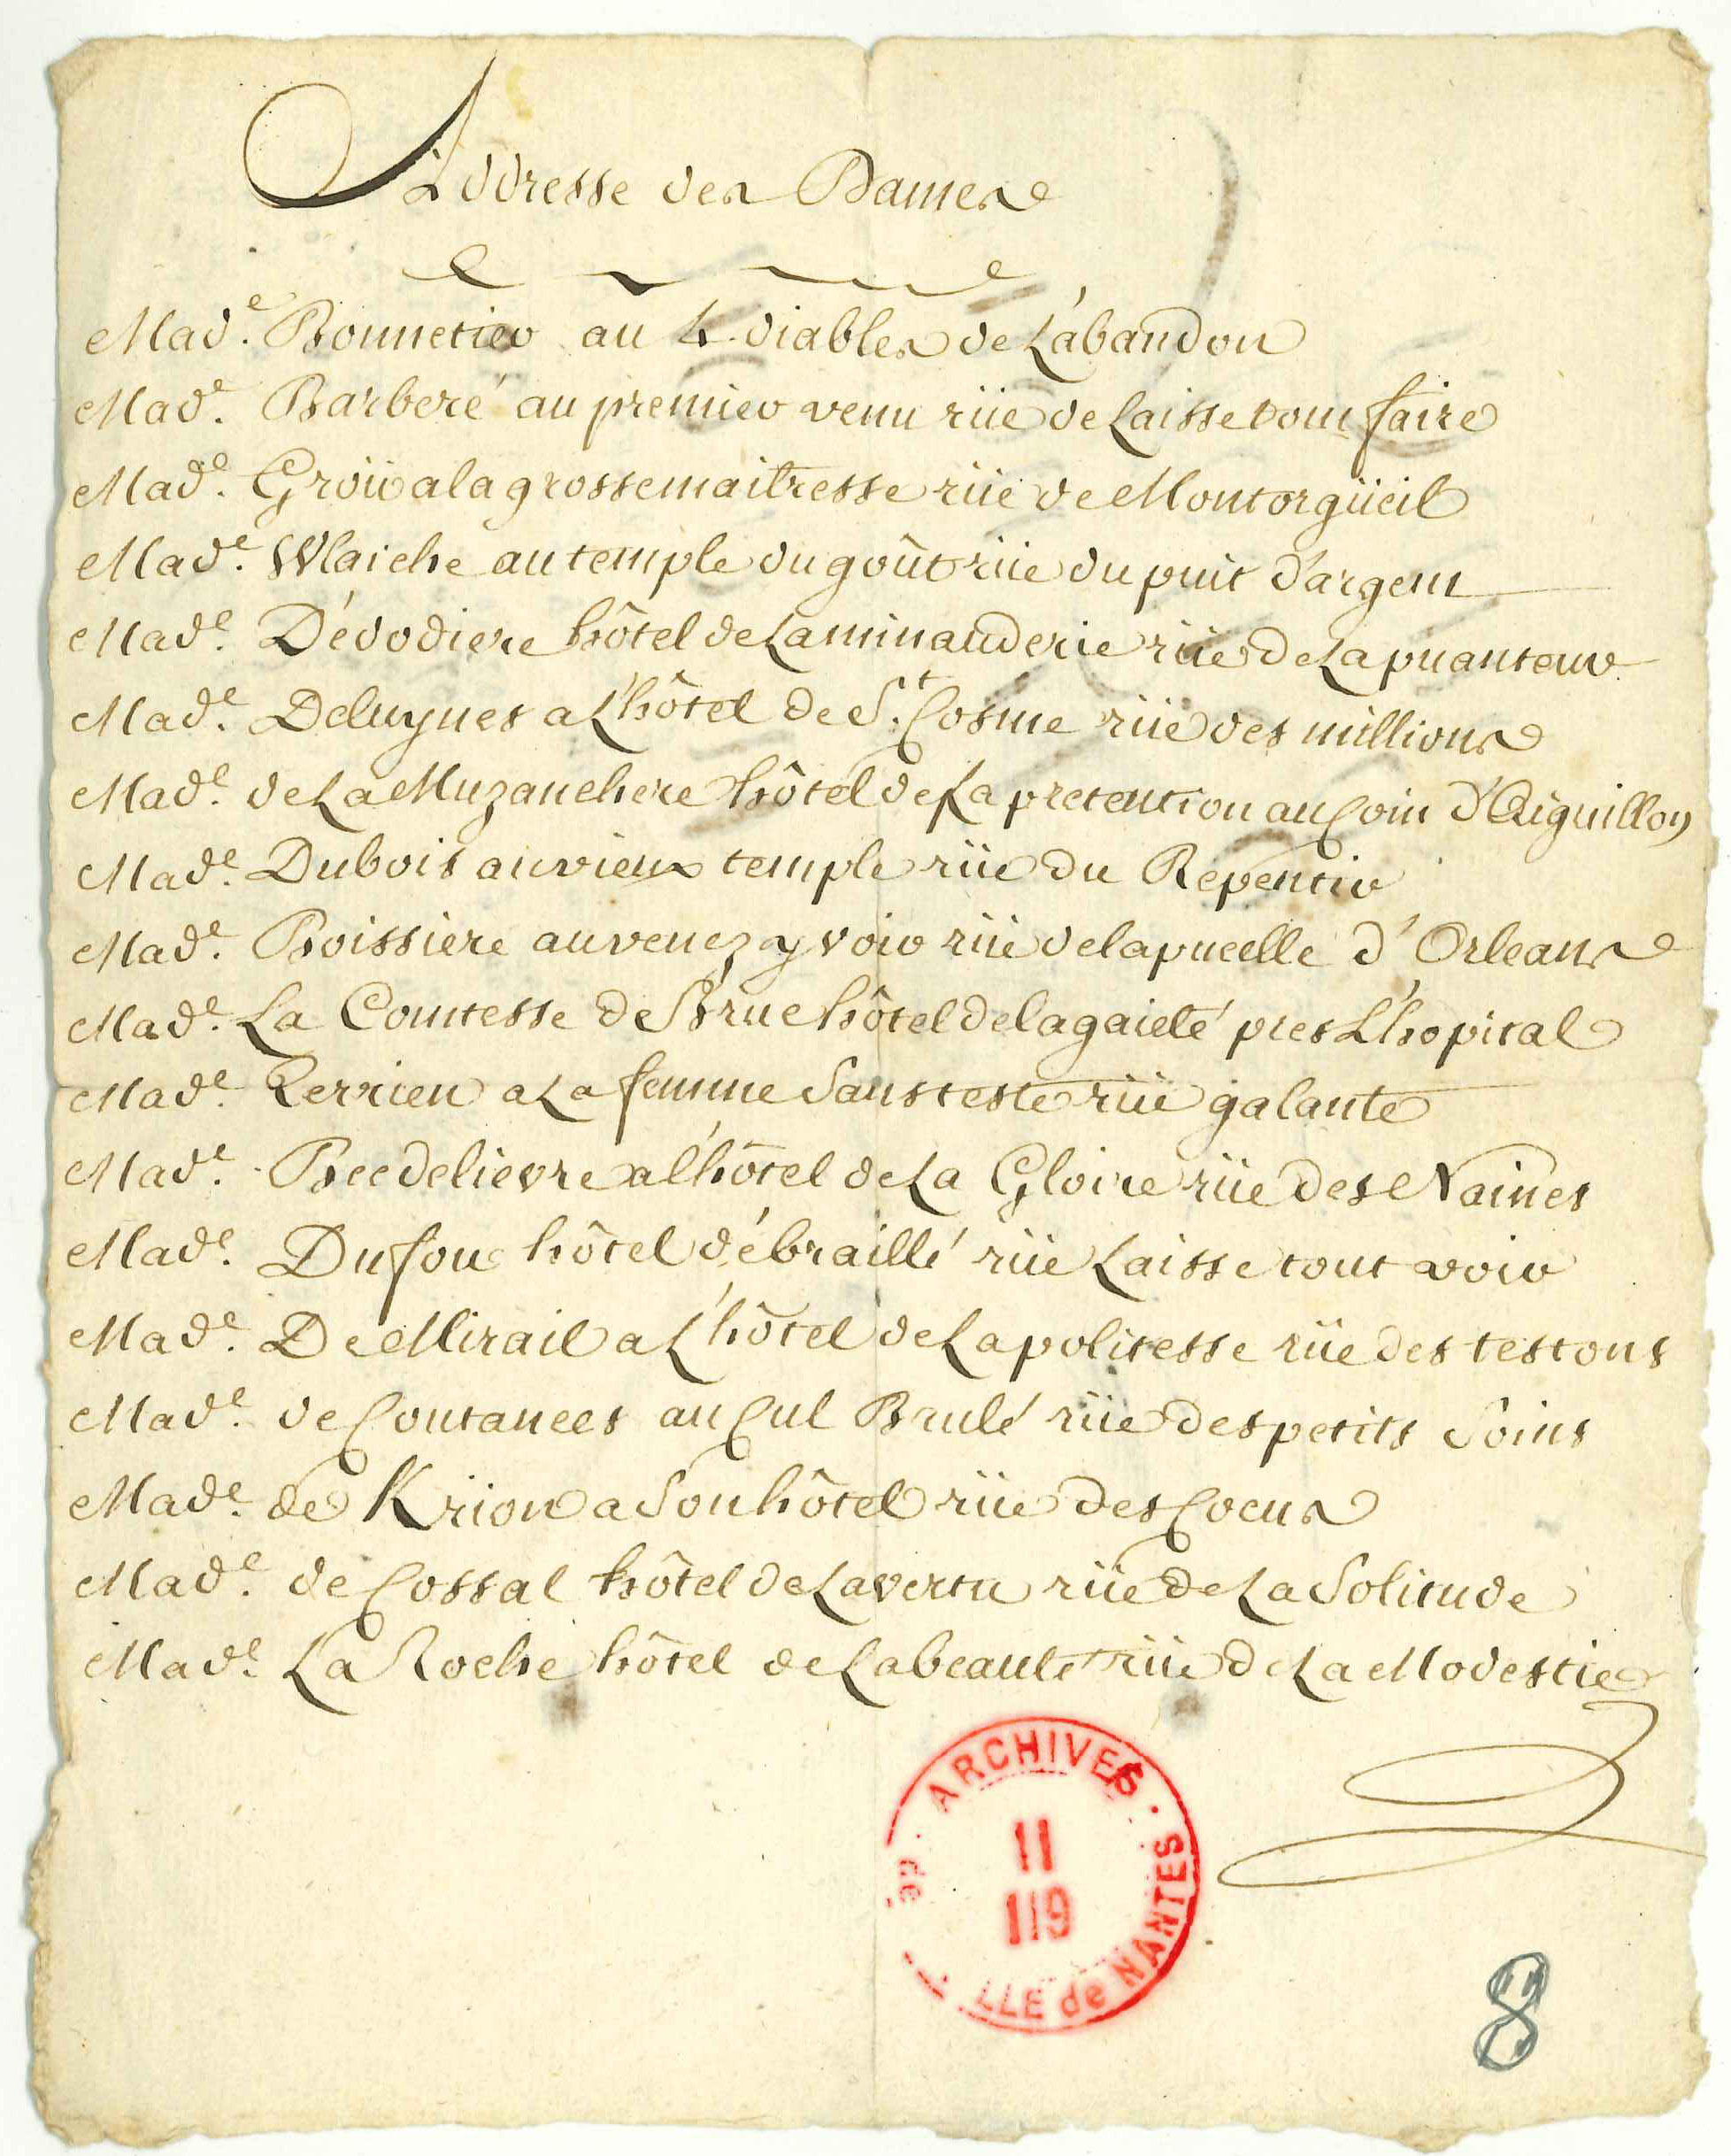 Addresse des Dames
Mad.e Bonnetier au 4. diables de L'abandon
Mad.e Barberé au premier venu rüe de Laisse tout faire
Mad.e Groüi a la grosse maitresse rüe de Montorgüeil
Mad.e Wlaiche au temple du goût rüe du puit d'argent
Mad.e Dévodiere hôtel de La minauderie rüe de La puanteur
Mad.e Deluynes a L'hôtel de S.t Cosme rüe des millions
Mad.e de La Muzanchere hôtel de La pretention au Coin d'Aiguillon
Mad.e Dubois au vieux temple rüe du Repentir
Mad.e Boissiere au venez y voir rüe de la pucelle d'Orleans
Mad.e La Comtesse de Brue hôtel de la gaieté pres L'hopital
Mad.e Kerrien a La femme Sans teste rüe galante
Mad.e Becdelievre a l'hôtel de La Gloire rüe des Naines
Mad.e Dufou hôtel débraillé rüe Laisse tout voir
Mad.e De Mirail a L'hôtel de La politesse rüe des testons
Mad.e de Coutances au Cul Brulé rüe des petits Soins
Mad.e de Krion a Son hôtel rüe des Cocus
Mad.e de Cossal hôtel de La vertu rüe de La Solitude
Mad.e La Roche hôtel de La beauté rüe de La Modestie
ARCHIVES de
11
119
LLE de NANTES
8